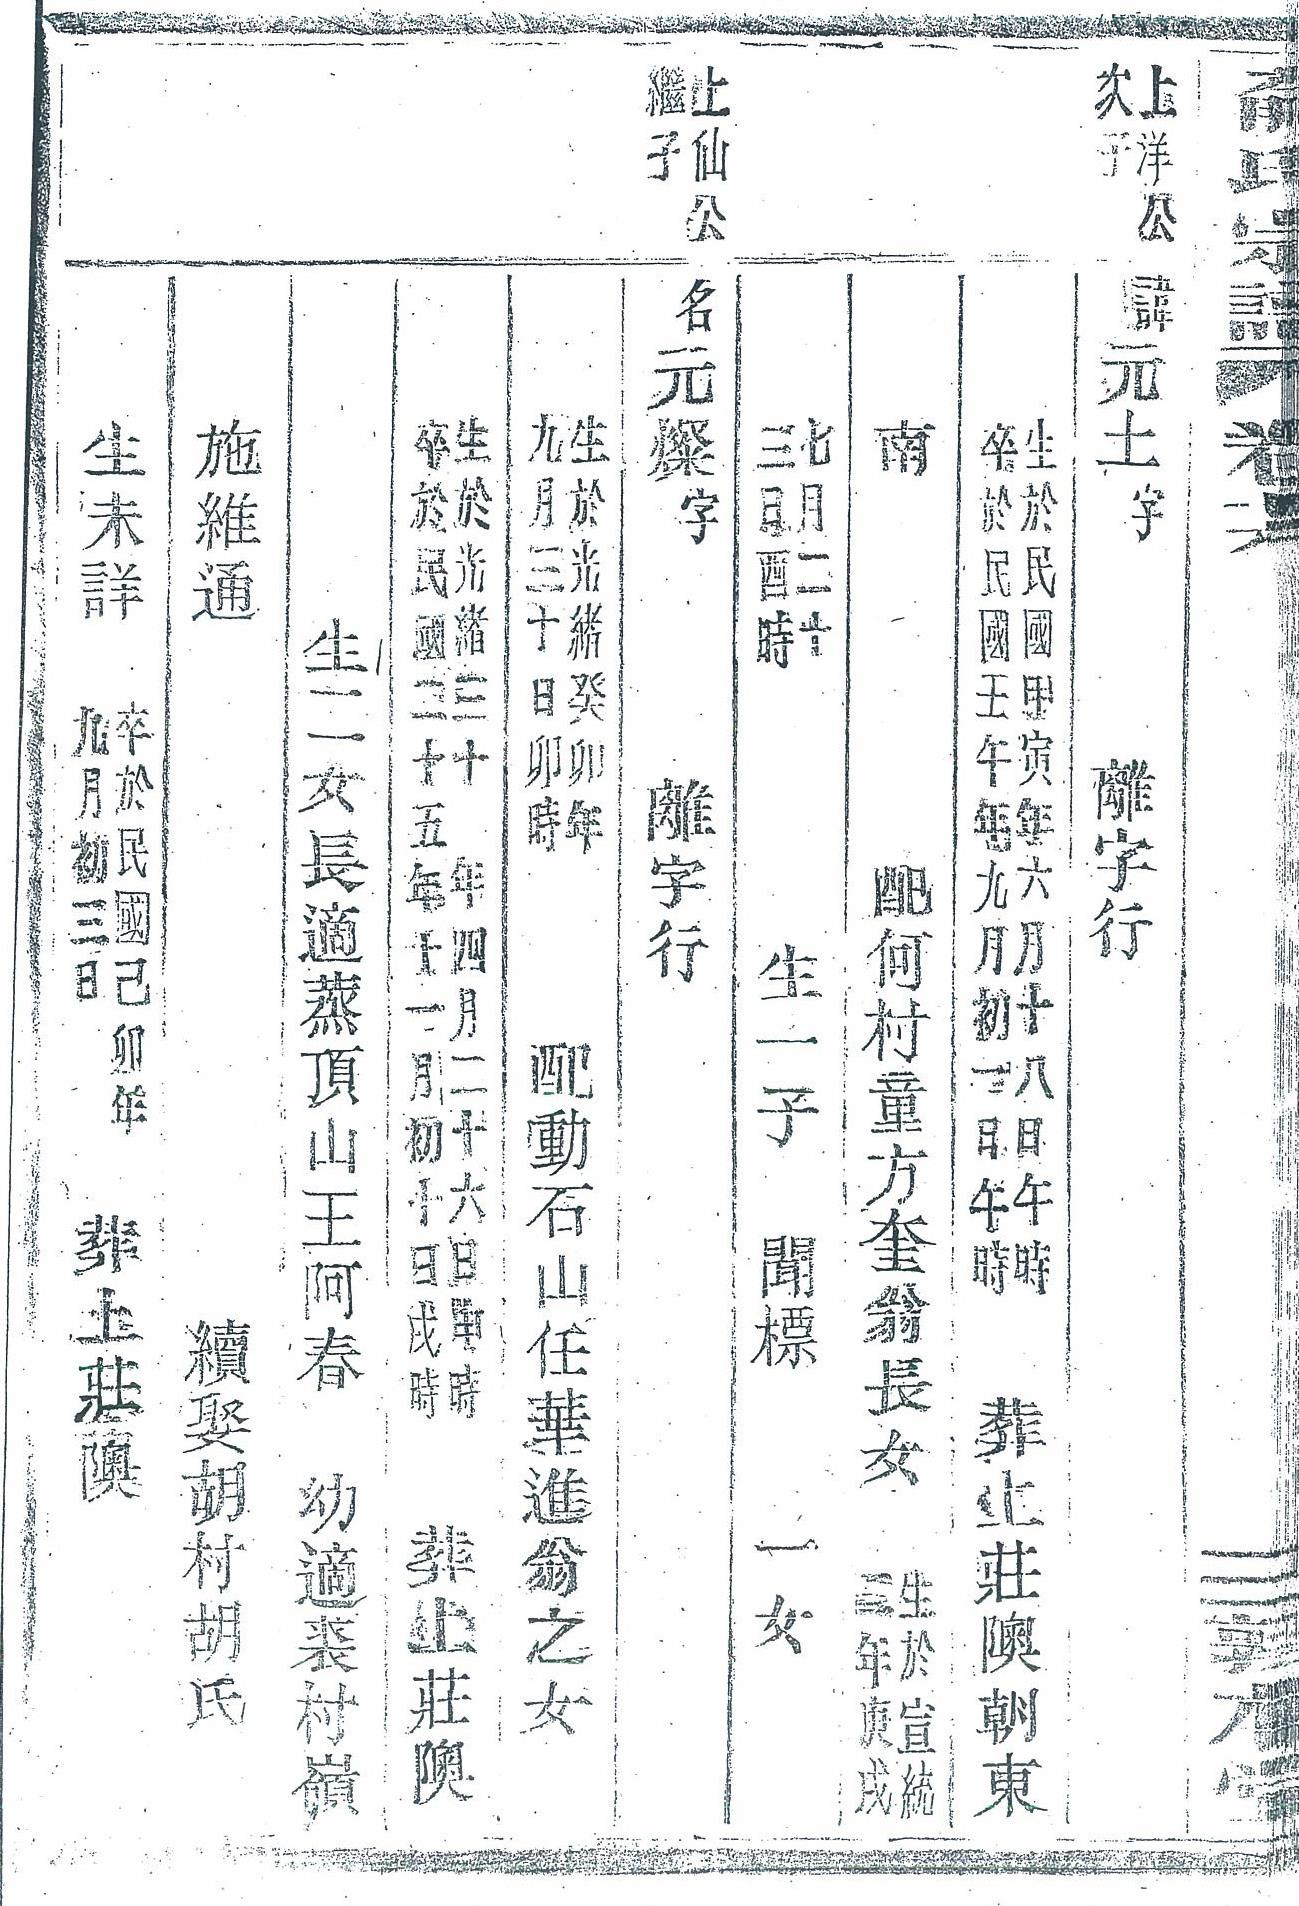 氏宗譜 卷六
上洋公
次子
諱元土字 離字行
生於民國甲寅年六月十八日午時
卒於民國壬午年九月初一日午時
葬上莊隩朝東
南 配何村童方奎翁長女
生於宣統
三年庚戌
七月二十
三日酉時
生一子 聞標 一女
上仙公
繼子
名元燦字 離字行
生於光緒癸卯年
九月三十日卯時
配動石山任華進翁之女
生於光緒三十 年四月二十六日申時
卒於民國二十五年十一月初十日戌時
葬上莊隩
生二女長適蒸頂山王阿春 幼適裘村嶺
施維通 續娶胡村胡氏
生未詳
卒於民國己卯年
九月初三日
葬上莊隩